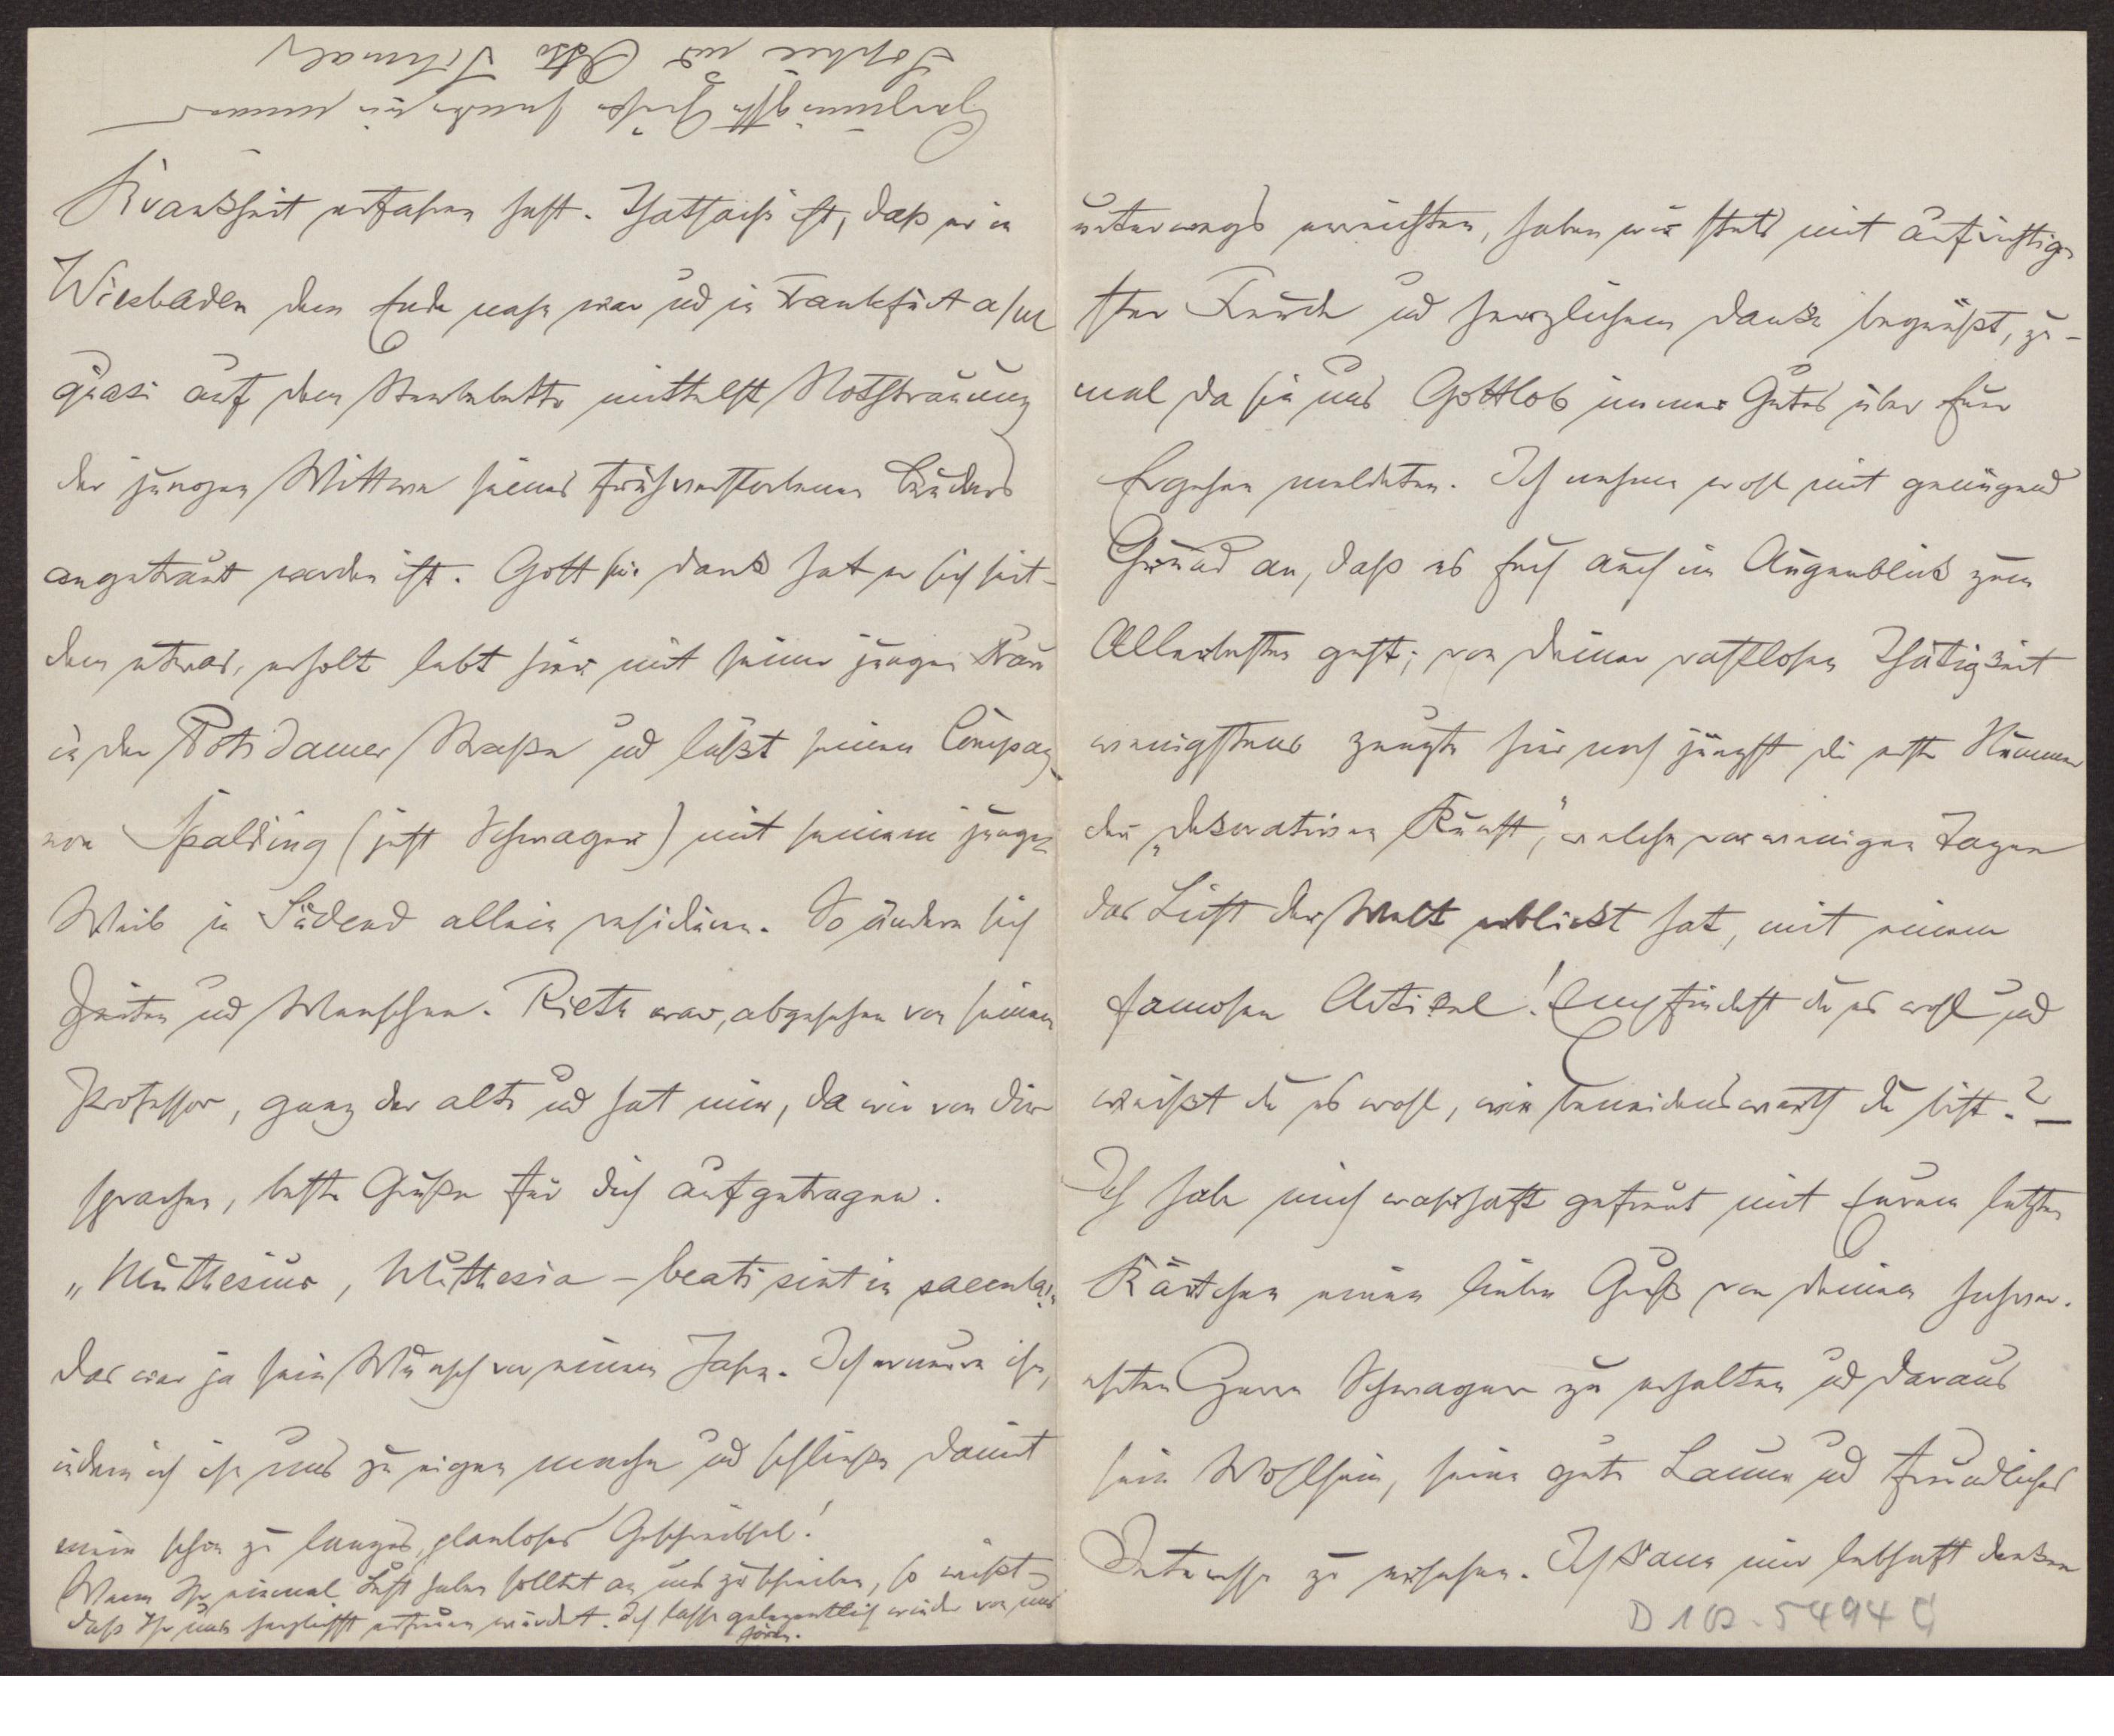 Krankheit erfahren hast. Thatsache ist, daß er in
Wiesbaden dem Ende nahe war und in Frankfurt a/M
quasi auf dem Sterbebette mittelst Nothtrauung
der jungen Wittwe seines frühverstorbenen Bruders
angetraut worden ist. Gott sei dank hat er sich seit-
dem etwas erholt lebt hier mit seiner jungen Frau
in der Potsdamer Straße und läßt seinen Compag-
non Spalding (jetzt Schwager) mit seinem jungen
Weib in Südend allein residiren. So ändern sich
Zeiten und Menschen. Rieth war, abgesehen von seinem
Professor, ganz der alte und hat mir, da wir von dir
sprachen, beste Grüße für dich aufgetragen.
„Muthesius, Muthesia – beati sint in saecula!"
das war ja sein Wunsch vor einem Jahre. Ich erneure ihn,
indem ich ihn uns zu eigen mache und schließe damit
mein schon zu langes, planloses Geschreibsel!
Wenn Ihr einmal Lust haben solltet an uns zu schreiben, so wißt
daß Ihr uns herzlichst erfreuen würdet. Ich lasse gelegentlich wieder von uns
hören.
Grüße
Sophie und Otto Schmalz
unterwegs erreichten, haben wir stets mit aufrichtig-
ster Freude und herzlichem Danke begrüßt, zu-
mal da sie uns Gottlob immer Gutes über Euer
Ergehen meldeten. Ich nehme wohl mit genügend
Grund an, daß es Euch auch im Augenblick zum
Allerbesten geht; von deiner rastlosen Thätigkeit
wenigstens zeugte hier noch jüngst die erste Nummer
der „dekorativen Kunst", welche vor wenigen Tagen
das Licht der Welt erblickt hat, mit einem
famosen Artikel! Empfindest du es wohl und
weißt du es wohl, wie beneidenswerth du bist? –
Ich habe mich wahrhaft gefreut mit Eurem letzten
Kärtchen einen lieben Gruß von deinem
Herrn Schwager zu erhalten und daraus
sein Wohlsein, seine gute Laune und freundliches
Interesse zu ersehen. Ich kann mir lebhaft denken
D 102-5494 c